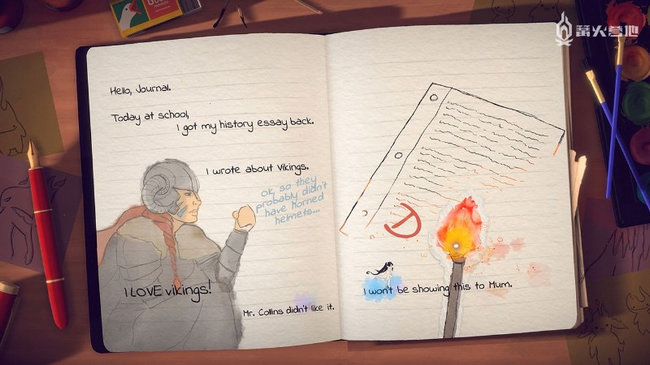 篝火营地
Hello, Journal.
Today at school,
I got my history essay back.
I wrote about Vikings.
ok, so they
probably didn't
have horned
helmets...
I LOVE vikings!
Mr. Collins didn't like it.
D
I won't be showing this to Mum.